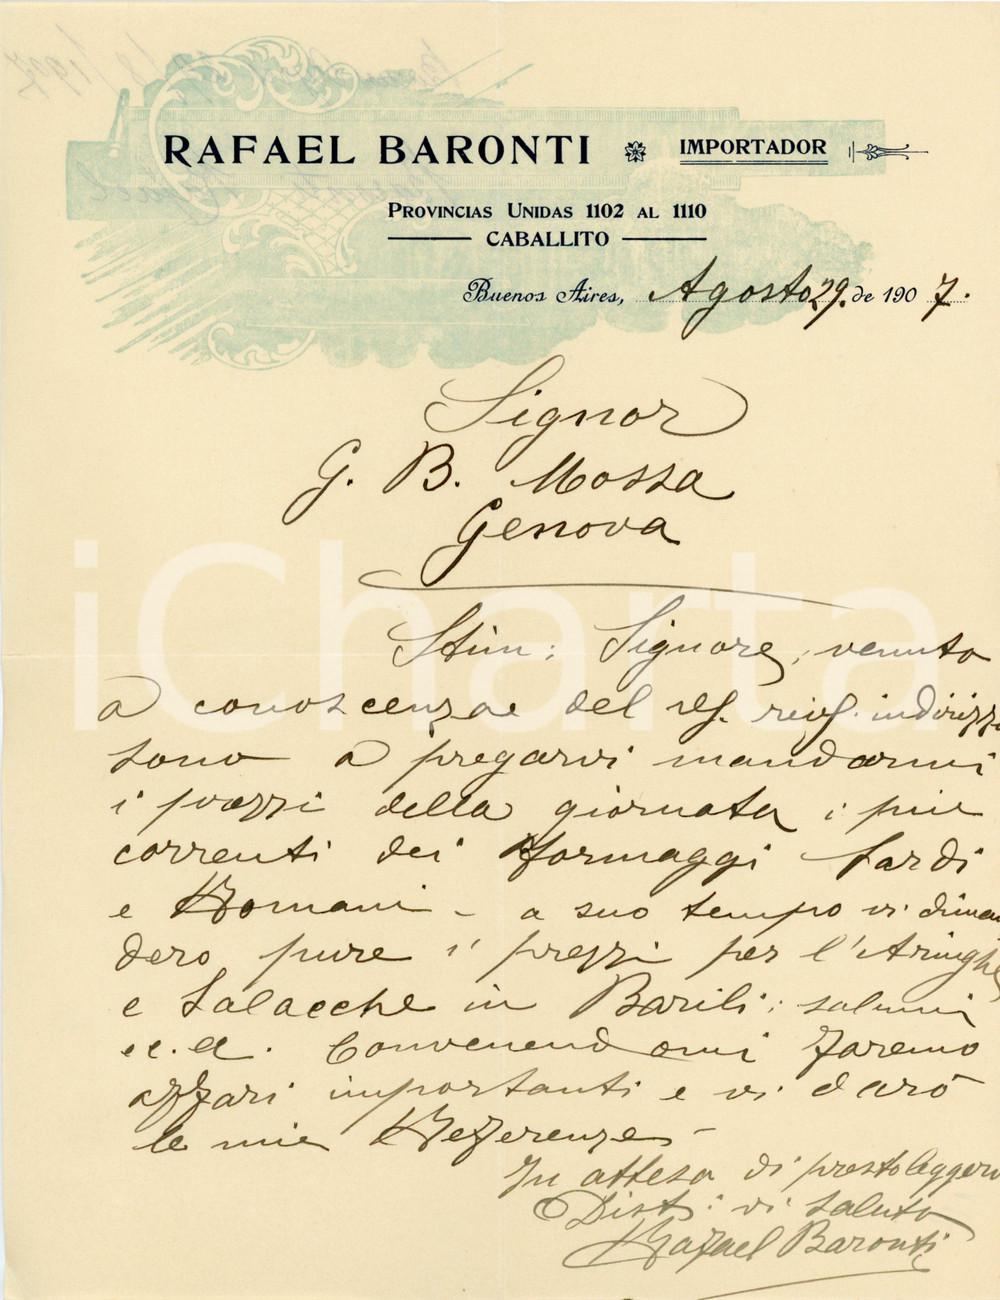 RAFAEL BARONTI IMPORTADOR
PROVINCIAS UNIDAS 1102 AL 1110
CABALLITO
Buenos Aires, Agosto 29. de 1907.
Signor
G. B. Mossa
Genova
iCharta
Stim: Signore, venuto
a conoscenzae del indirizzo
sono a pregarvi mandarmi
i prezzi della giornata i più
correnti dei Formaggi Sardi
e Romani – a suo tempo vi diman
dero pure i prezzi per l'Aringhe
e Salacche in Barili: salumi
ec. ec. Convenendomi faremo
affari importanti e vi darò
le mie Refferenze –
In attesa di presto leggervi
Dist: vi saluto
Rafael Baronti